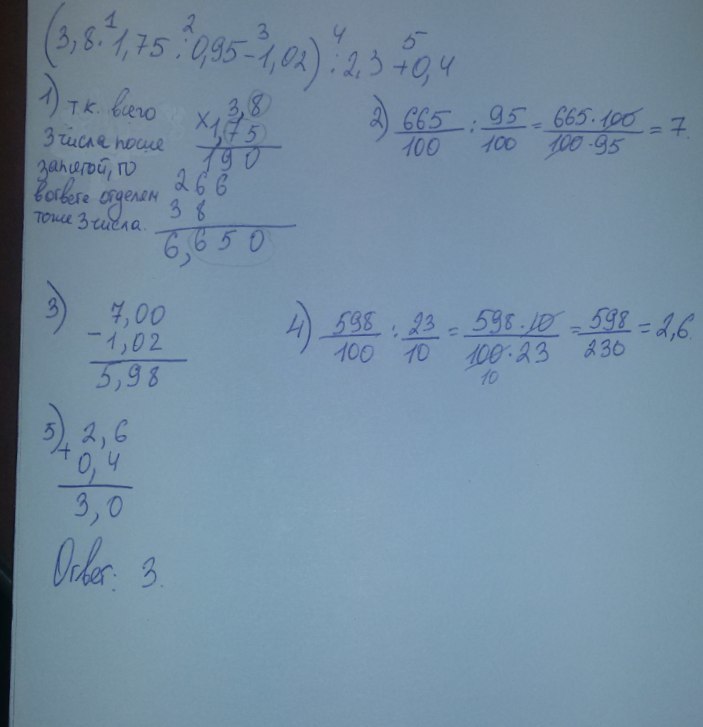 1 2 3 4 5
(3,8·1,75:0,95-1,02):2,3+0,4
1) т.к. всего
3 числа после
запятой, то
в ответе отделяем
тоже 3 числа.
3,8
×1,75
190
266
38
6,650
2) 665/100 : 95/100 = 665·100/100·95 = 7.
3) 7,00
-1,02
5,98
4) 598/100 : 23/10 = 598·10/100·23 = 598/230 = 2,6.
10
5) 2,6
+0,4
3,0
Ответ: 3.